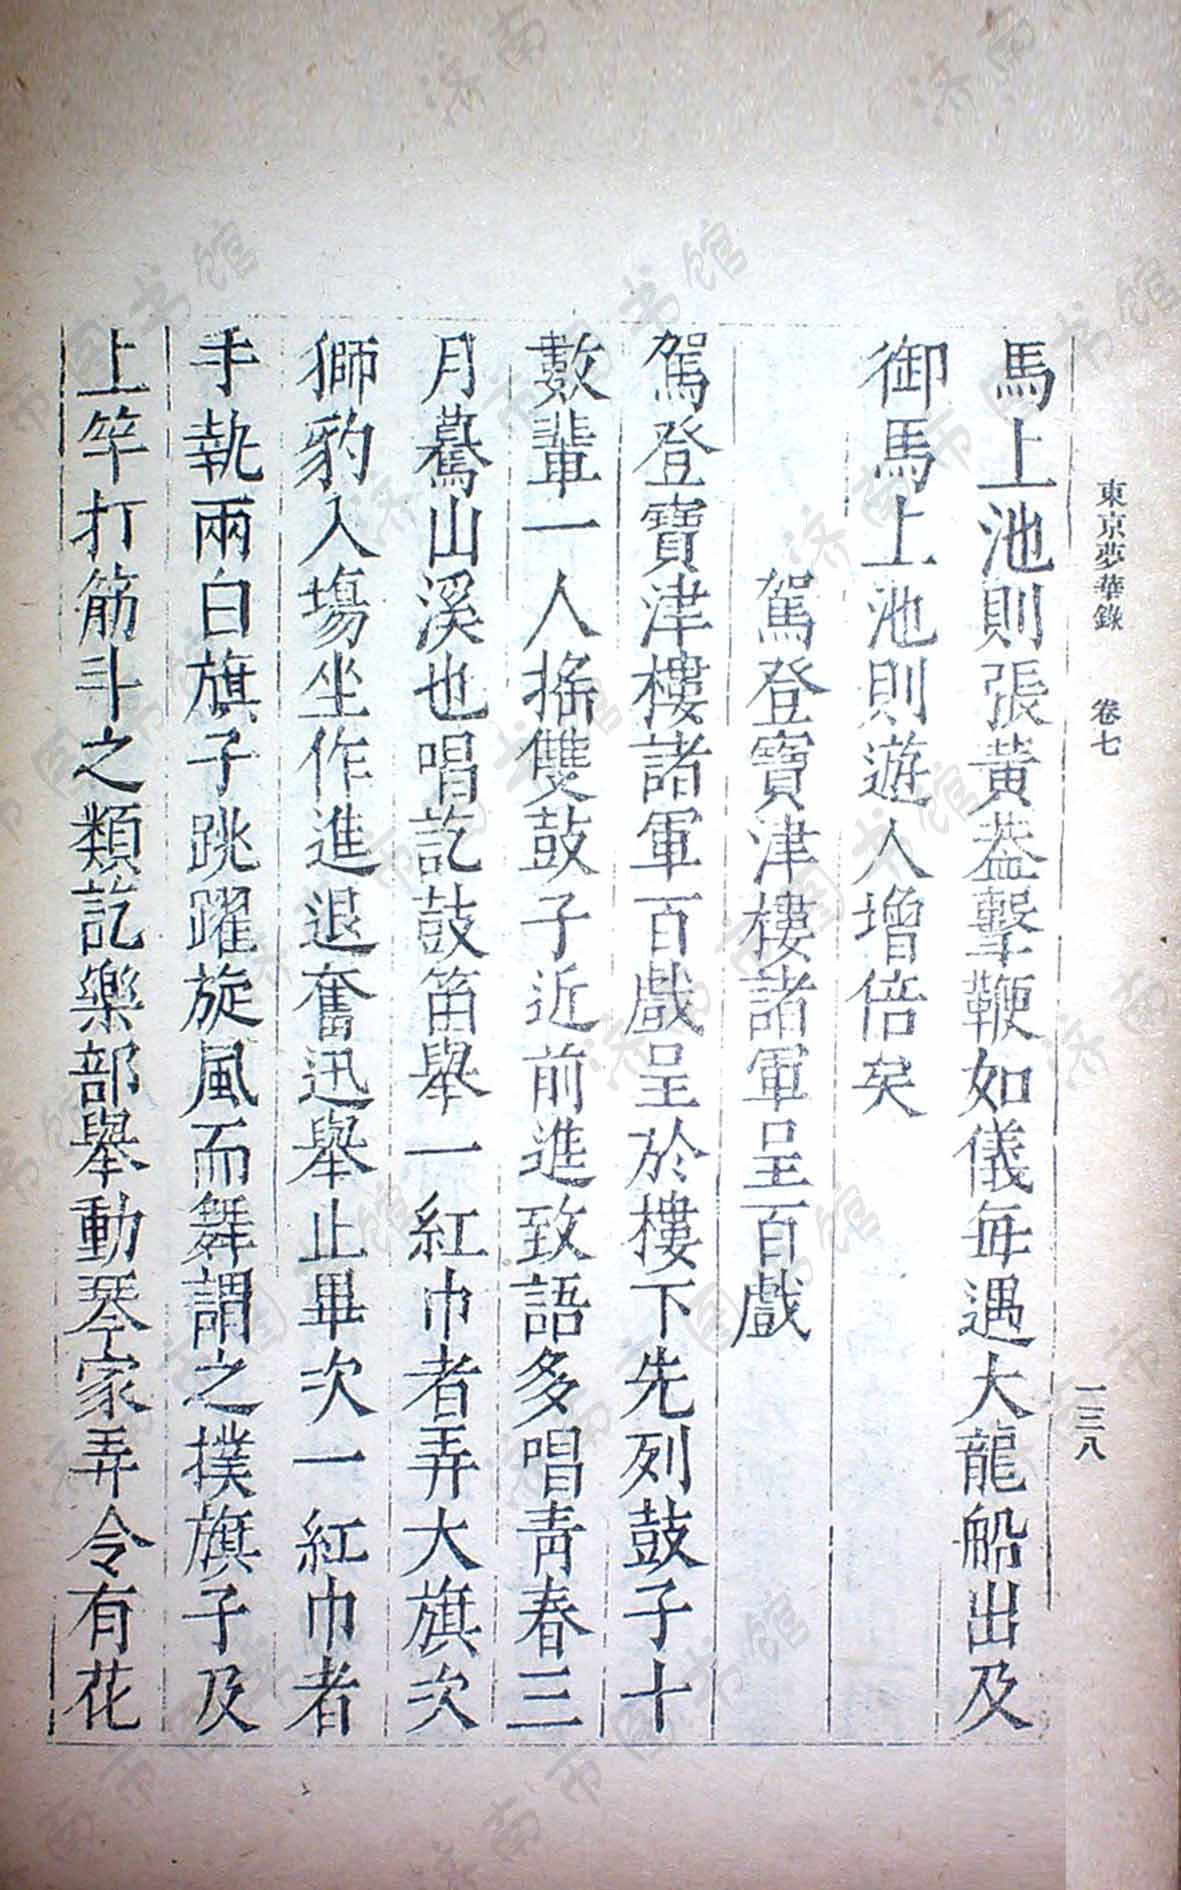 東京夢華錄 卷七 一三八
馬上池則張黃蓋擊鞭如儀每遇大龍船出及
御馬上池則遊人增倍矣
駕登寶津樓諸軍呈百戲
駕登寶津樓諸軍百戲呈於樓下先列鼓子十
數輩一人搖雙鼓子近前進致語多唱青春三
月驀山溪也唱訖鼓笛舉一紅巾者弄大旗次
獅豹入場坐作進退奮迅舉止畢次一紅巾者
手執兩白旗子跳躍旋風而舞謂之撲旗子及
上竿打筋斗之類訖樂部舉動琴家弄令有花
济南市图书馆